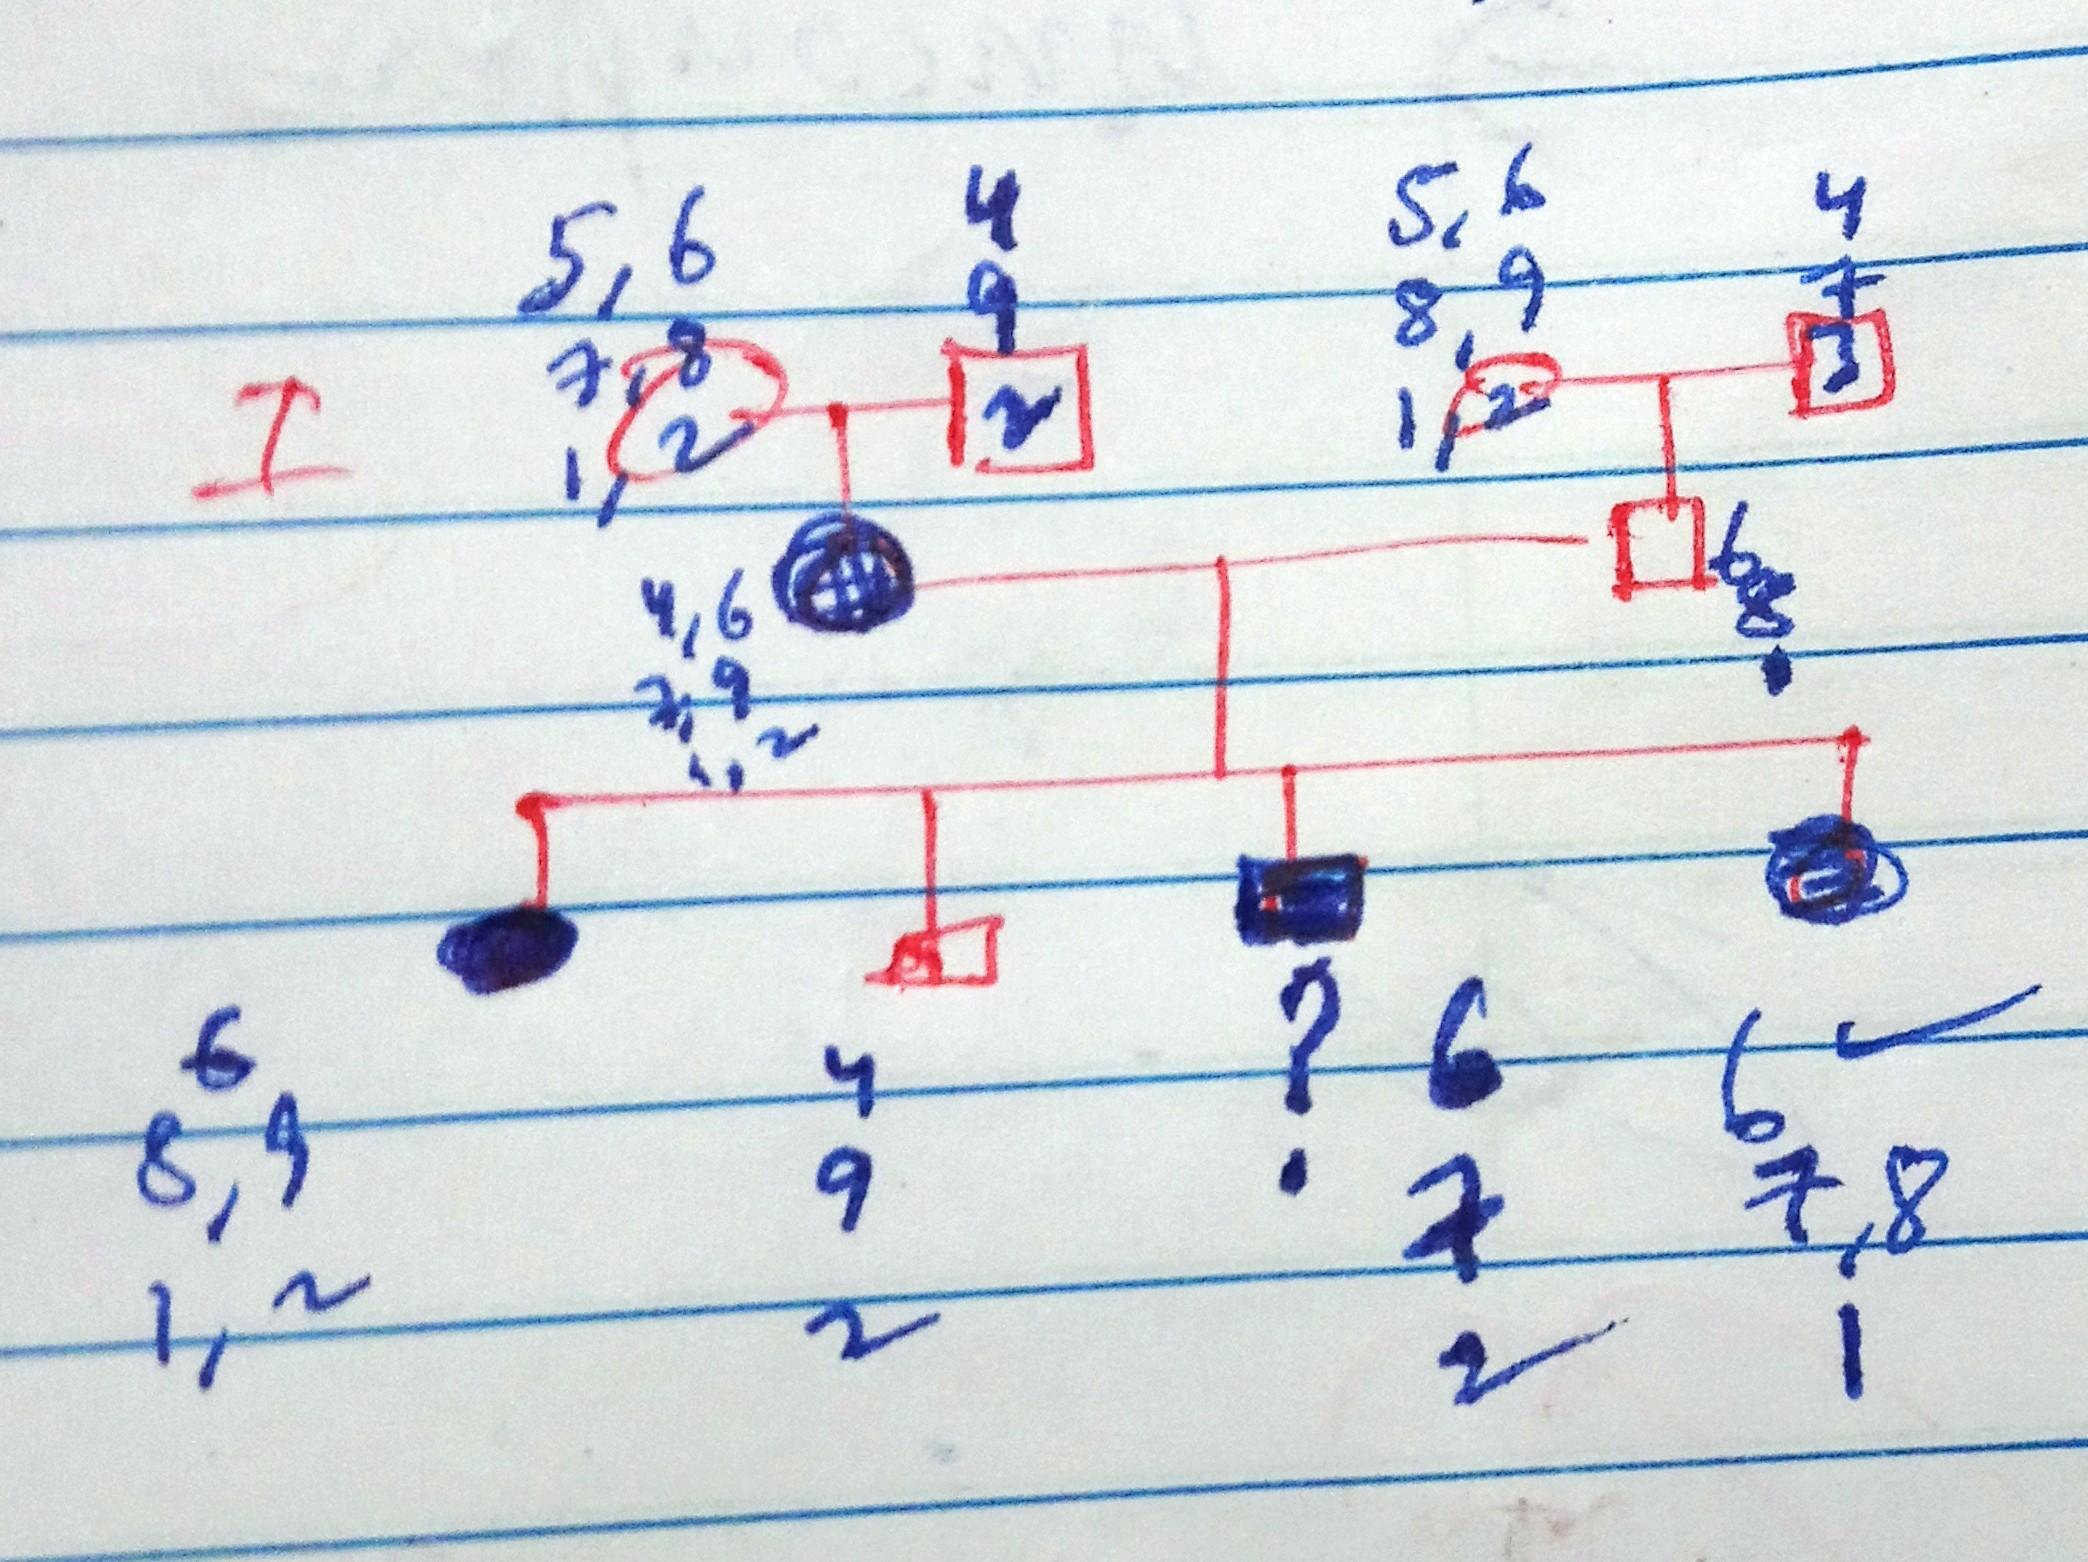 5, 6
7, 8
1, 2
4
9
2
5, 6
8, 9
1, 2
4
7
3
I
4, 6
7, 9
1, 2
6
8
6
8, 9
1, 2
4
9
2
?
6
7
2
6
7, 8
1